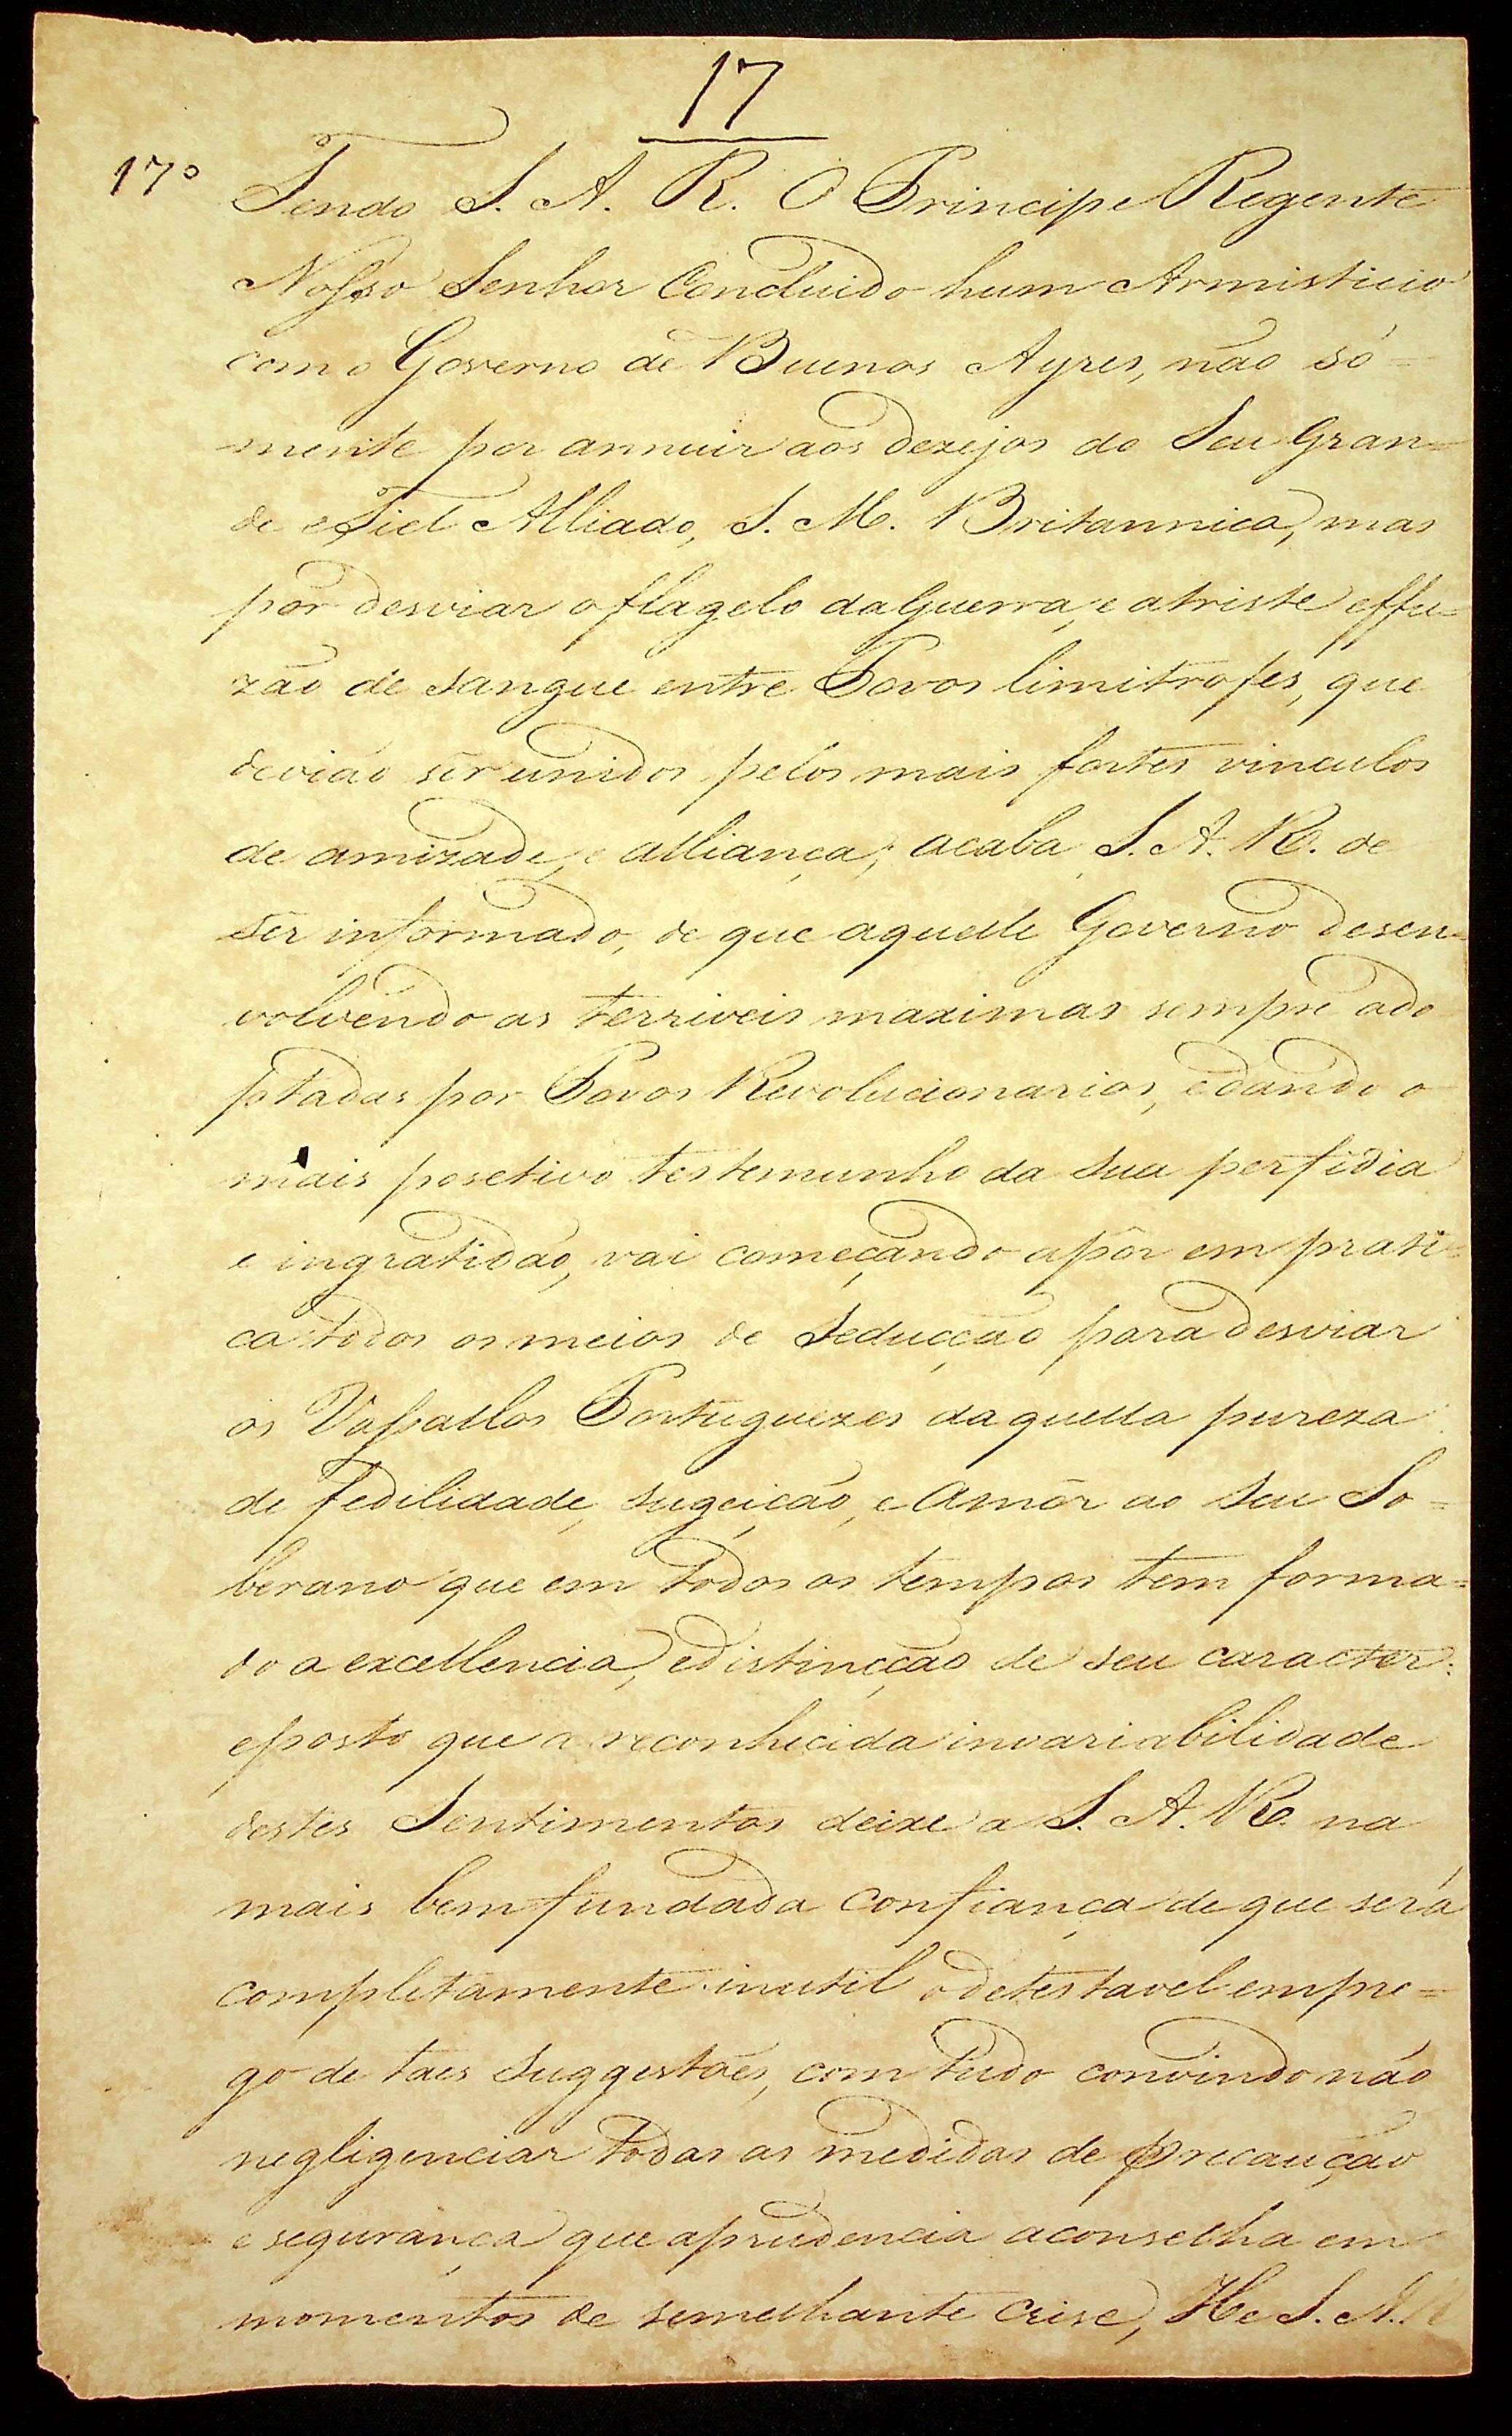 17
17º Tendo S. A. R. O Principe Regente
Nosso Senhor Concluido hum Armisticio
com o Governo de Buenos Ayres, não só=
mente por annuir aos dezejos do Seu Gran=
de e Fiel Alliado, S. M. Britannica, mas
por desviar o flagelo da Guerra, e a triste effu=
zão de sangue entre Povos limitrofes, que
devião ser unidos pelos mais fortes vinculos
de amizade, e alliança; acaba S. A. R. de
ser informado, de que aquelle Governo desen=
volvendo as terriveis maximas sempre ado
ptadas por Povos Revolucionarios, e dando o
mais posetivo testemunho da sua perfidia
e ingratidão, vai começando a pôr em prati=
ca todos os meios de Seducção para desviar
os Vassallos Portuguezes daquella pureza
de fedilidade, sugeição, e Amôr ao seu So=
berano que em todos os tempos tem forma=
do a excellencia, e distincção de seu caracter:
e posto que a reconhecida invariabilidade
destes Sentimentos deixe a S. A. R. na
mais bem fundada confiança de que será
completamente inutil o detestavel empre=
go de taes suggestões, com tudo convindo não
negligenciar todas as medidas de precaução
e segurança que a prudencia aconselha em
momentos de semelhante crise, He S. A. R